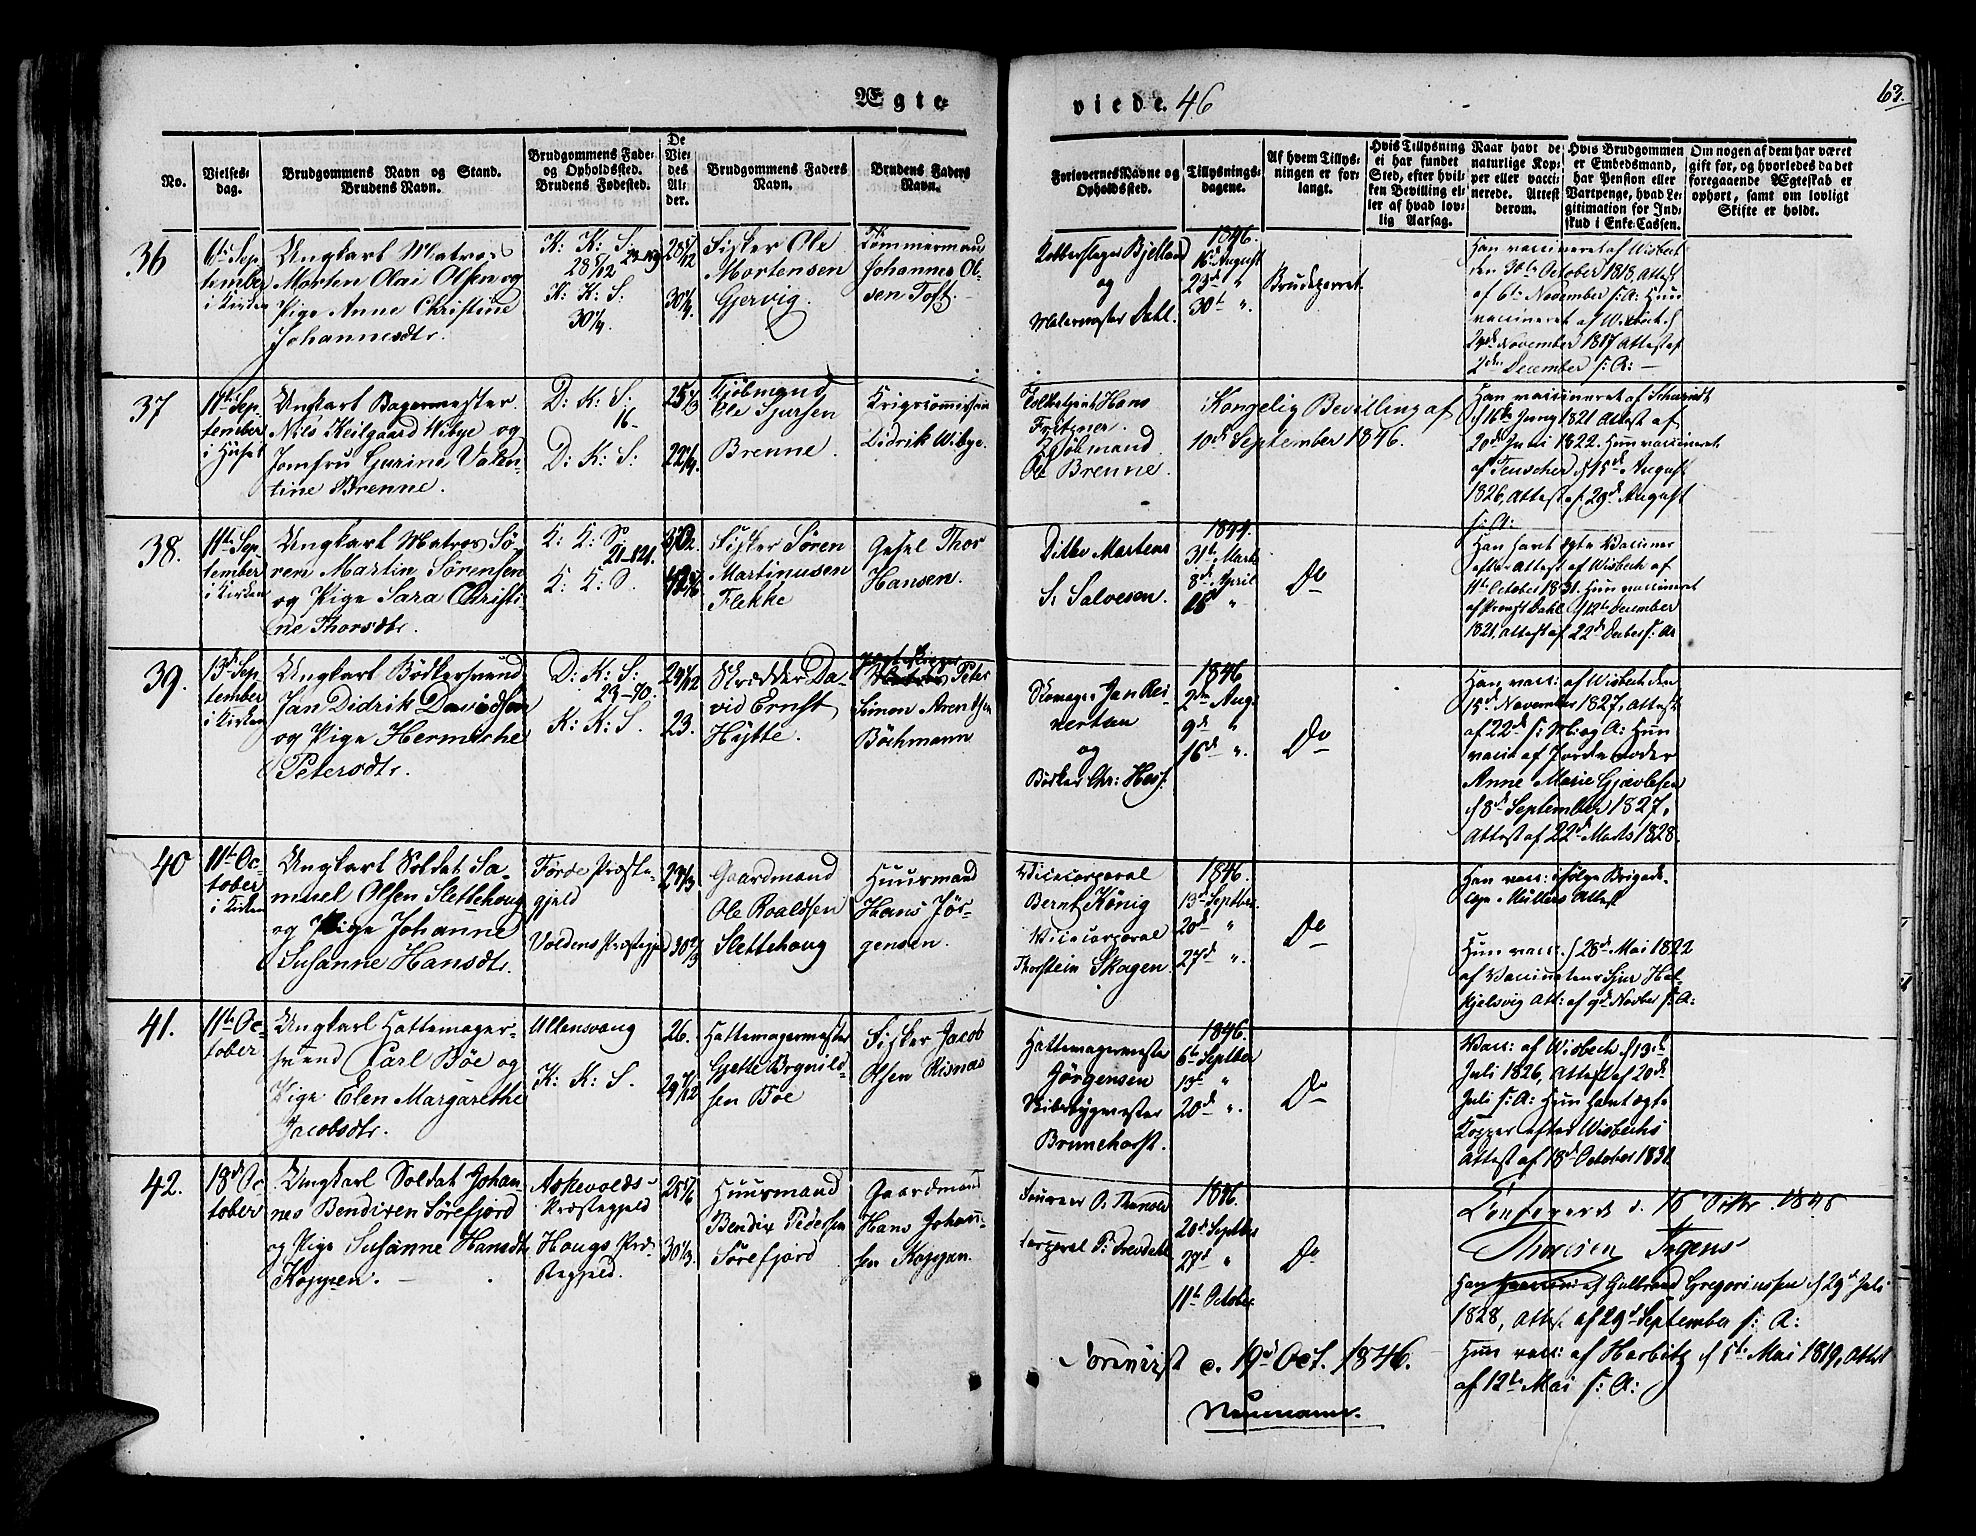 Ægte
viede. 46
63.
No.
Vielses-
dag.
Brudgommens Navn og Stand.
Brudens Navn.
Brudgommens Føde-
og Opholdssted.
Brudens Fødested.
De
Vie-
des
Al-
der.
Brudgommens Faders
Navn.
Brudens Faders
Navn.
Forlovernes Navne og
Opholdssted.
Tillysnings-
dagene.
Af hvem Tillys-
ningen er for-
langt.
Hvis Tillysning
ei har fundet
Sted, efter hvil-
ken Bevilling el-
ler af hvad lov-
lig Aarsag.
Naar havt de
naturlige Kop-
per eller vacci-
nerede. Attest
derom.
Hvis Brudgommen
er Embedsmand,
har Pension eller
Vartpenge, hvad Le-
gitimation for Ind-
skud i Enke-Cassen.
Om nogen af dem har været
gift før, og hvorledes da det
foregaaende Ægteskab er
ophørt, samt om lovligt
Skifte er holdt.
36
6te Sep
tember
i Kirken
Ungkarl Matros
Morten Olai Olsen og
Pige Anne Christine
Johannesdtr.
K: K: S:
K: K: S:
30 1/4
Fisker Ole
Mortensen
Gjervig.
Tømmermand
Johannes Ol-
sen Toft.
Kobberslager Bjelland
og
Malermester Dahl.
1846.
16de August
23de "
30te ".
Brudeparret.
Han vaccineret af Wisbech
den 30te October 1818 Attest
af 6te November s: A: Hun
vaccineret af Wisbech d
24de November 1817 Attest af
2den December s: A:
37
11te Sep
tember
i Huset
Ungkarl Bagermester
Nils Keilgaard Wibye og
Jomfru Gurine Valen-
tine Brenne.
D: K: S:
16
D: K: S:
25 1/3
22 1/4
Kjøbmand
Ole Sjursen
Brenne
Krigscommissair
Didrik Wibye.
Hans
Fritzner.
Kjøbmand
Ole Brenne.
Kongelig Bevilling af
10de September 1846.
Han vaccineret af Schmidt
d 16de Juny 1821 Attest af
20de Juni 1822. Hun vaccineret
af Teuscher d 15de August
1826, Attest d 29de August
s: A:
38.
11te Sep
tember
i Kirken
Ungkarl Matros Sø-
ren Martin Sørensen
og Pige Sara Christi-
ne Thorsdtr.
K: K: S.
21-121.
K: K: S.
Fisker Søren
Martinusen
Flekke
Gesel Thor
Hansen.
Ditlev Martens
S. Salvesen.
1844.
31te Marts
8de April
Do
Han havt ægte Vacciner
efter Attest af Wisbech af
11te October 1831. Hun vaccineret
af Provst Dahl d 12te December
1821, Attest af 22de Decber s: A:
39.
13de Sep
tember
i Kirken
Ungkarl Bødkersvend
Jan Didrik Davidsen
og Pige Hermiche
Petersdtr.
D: K: S:
23-70.
K: K: S.
23.
Skrædder Da-
vid Ernst
Hytte.
Peter
Simon Arentsen
Bøchmann
Skomager Jan Rei-
nertsen
og
Bødker Chr: Hast.
1846
2den Aug:
9de "
16de ".
Do
Han vacc: af Wisbech den
15de November 1827, Attest
af 22de s: M: og A: Hun
vaccit af Jordemoder
Anne Marie Gjævlesen
d 8de September 1827,
Attest af 22de Marts 1828.
40
11te Oc
tober
i Kirken
Ungkarl Soldat Sa-
muel Olsen Slettehoug
og Pige Johanne
Susanne Hansdtr.
Førde Præste-
gjeld
Voldens Præstegjeld
30 2/3
Gaardmand
Ole Roaldsen
Slettehoug
Huusmand
Hans Jør-
gensen.
Vicecorporal
Bernt König
Vicecorporal
Thorstein Skagen
1846.
13de Septber.
20de "
27de ".
Do
Han vacc: ifølge Brigade-
lege Müllers Attest
Hun vacc. d 28de Mai 1822
af Vaccinateur Sjur Hel-
kjelsvig Att: af 9de Novber s: A:
41.
11te Oc
tober
Ungkarl Hattemager-
svend Carl Bøe og
Pige Elen Margarethe
Jacobsdtr.
Ullensvang
K: K: S.
26.
29 7/12
Hattemagermester
Gjette Brynild-
sen Bøe
Fisker Jacob
Olsen Risnæs
Hattemagermester
Jørgensen
Brunchorst.
1846.
6te Septber
13de "
20de ".
Do
Vacc: af Wisbech d 13de
Juli 1826, Attest af 20de
Juli s: A: Hun havt ægte
Kopper efter Wisbechs
Attest af 18de October 1831
42.
18de Oc
tober
Ungkarl Soldat Johan
nes Bendixen Sørefjord
og Pige Susanne Hansdtr
Koppen.
Askevolds-
Præstegjeld
Hougs Præ-
stegjeld.
30 1/3
Huusmand
Bendix Pedersen
Sørefjord
Gaardmand
Hans Johan-
sen Koppen.
1846.
20de Septber
27de "
11te October
Do
d. 16 Octbr. 1846
Thoresen Irgens
af Gulbrand Gregoriussen d 29de Juli
1828, Attest af 29de September s: A:
Hun vacc: af Harbitz d 5te Mai 1819, Attest
af 12te Mai s: A:
d. 19de Oct. 1846.
Neumann.